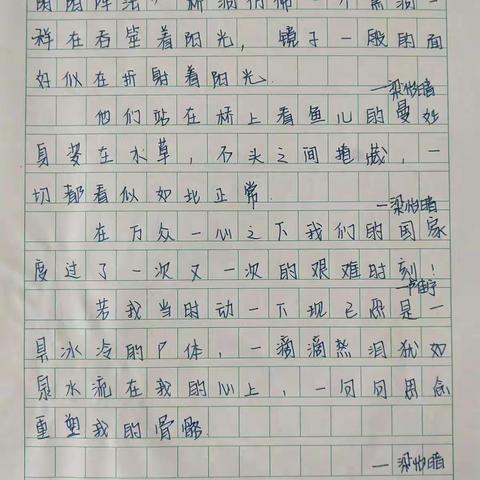 祥在吞筮着阳光，镜子一般的面
好似在折射着阳光.
一梁怡暗
他们站在桥上看鱼儿的曼妙
身姿在水草，石头之间掩藏，一
切都看似如此正常.
一梁怡暗
在万众一心之下我们的国家
度过了一次又一次的艰难时刻！
若我当时动一下现已恐是一
具冰冷的尸体，一滴滴热泪犹如
泉水流在我的心上，一句句思念
重塑我的骨骼.
一梁怡暗